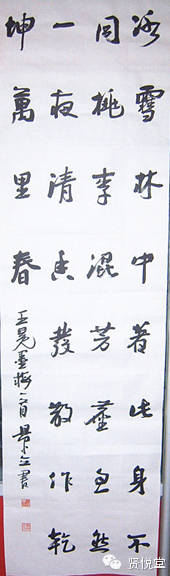 冰雪林中著此身不
同桃李混芳塵忽然
一夜清香發散作乾
坤萬里春
王冕墨梅一首 書
贤悦堂